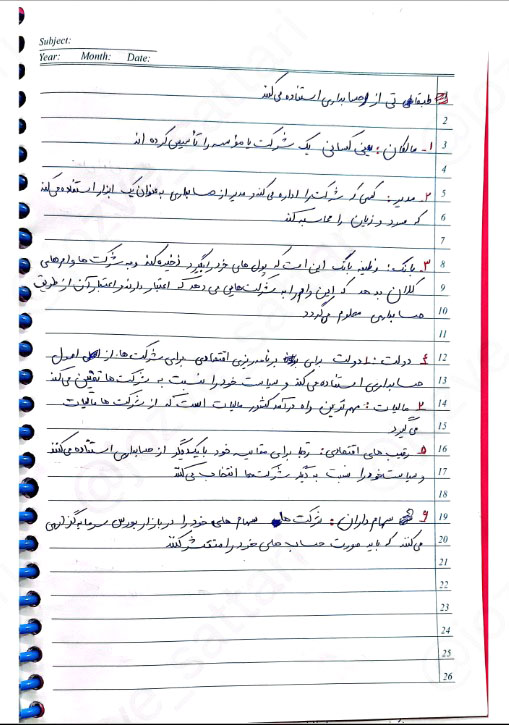 Subject:
Year: Month: Date:
طبقاتی از حسابداری استفاده می‌کنند
2
۱- مالکان: یعنی کسانی یک شرکت یا مؤسسه را تأسیس کرده اند 3
4
۲- مدیر: کسی که شرکت را اداره می‌کند مدیر از حسابداری به عنوان یک ابزار استفاده می‌کند 5
که سود و زیان را محاسبه کند 6
7
۳- بانک: وظیفه بانک این است که پول های خرد را بگیرد ذخیره کند و به شرکت ها وام‌های 8
کلان بدهد که این وام را به شرکت‌هایی می دهد که اعتبار دارند و اعتبار آن از طریق 9
حسابداری معلوم می‌گردد 10
11
۴ دولت: ۱ دولت برای برنامه‌ریزی اقتصادی برای شرکت ها از اصول 12
حسابداری استفاده می‌کند و سیاست خود را نسبت به شرکت ها تعیین می‌کند 13
۲ مالیات: مهم ترین راه درآمد کشور مالیات است که از شرکت ها مالیات 14
می گیرد 15
۵ رقیب های اقتصادی: رقبا برای مقایسه خود با یکدیگر از حسابداری استفاده می‌کنند 16
و سیاست خود را نسبت به دیگر شرکت‌ها انتخاب می‌کنند 17
18
۶ سهام داران: شرکت ها سهام های خود را در بازار بورس سرمایه‌گذاری 19
می‌کنند که باید صورت حساب های خود را منتشر کنند 20
21
22
23
24
25
26